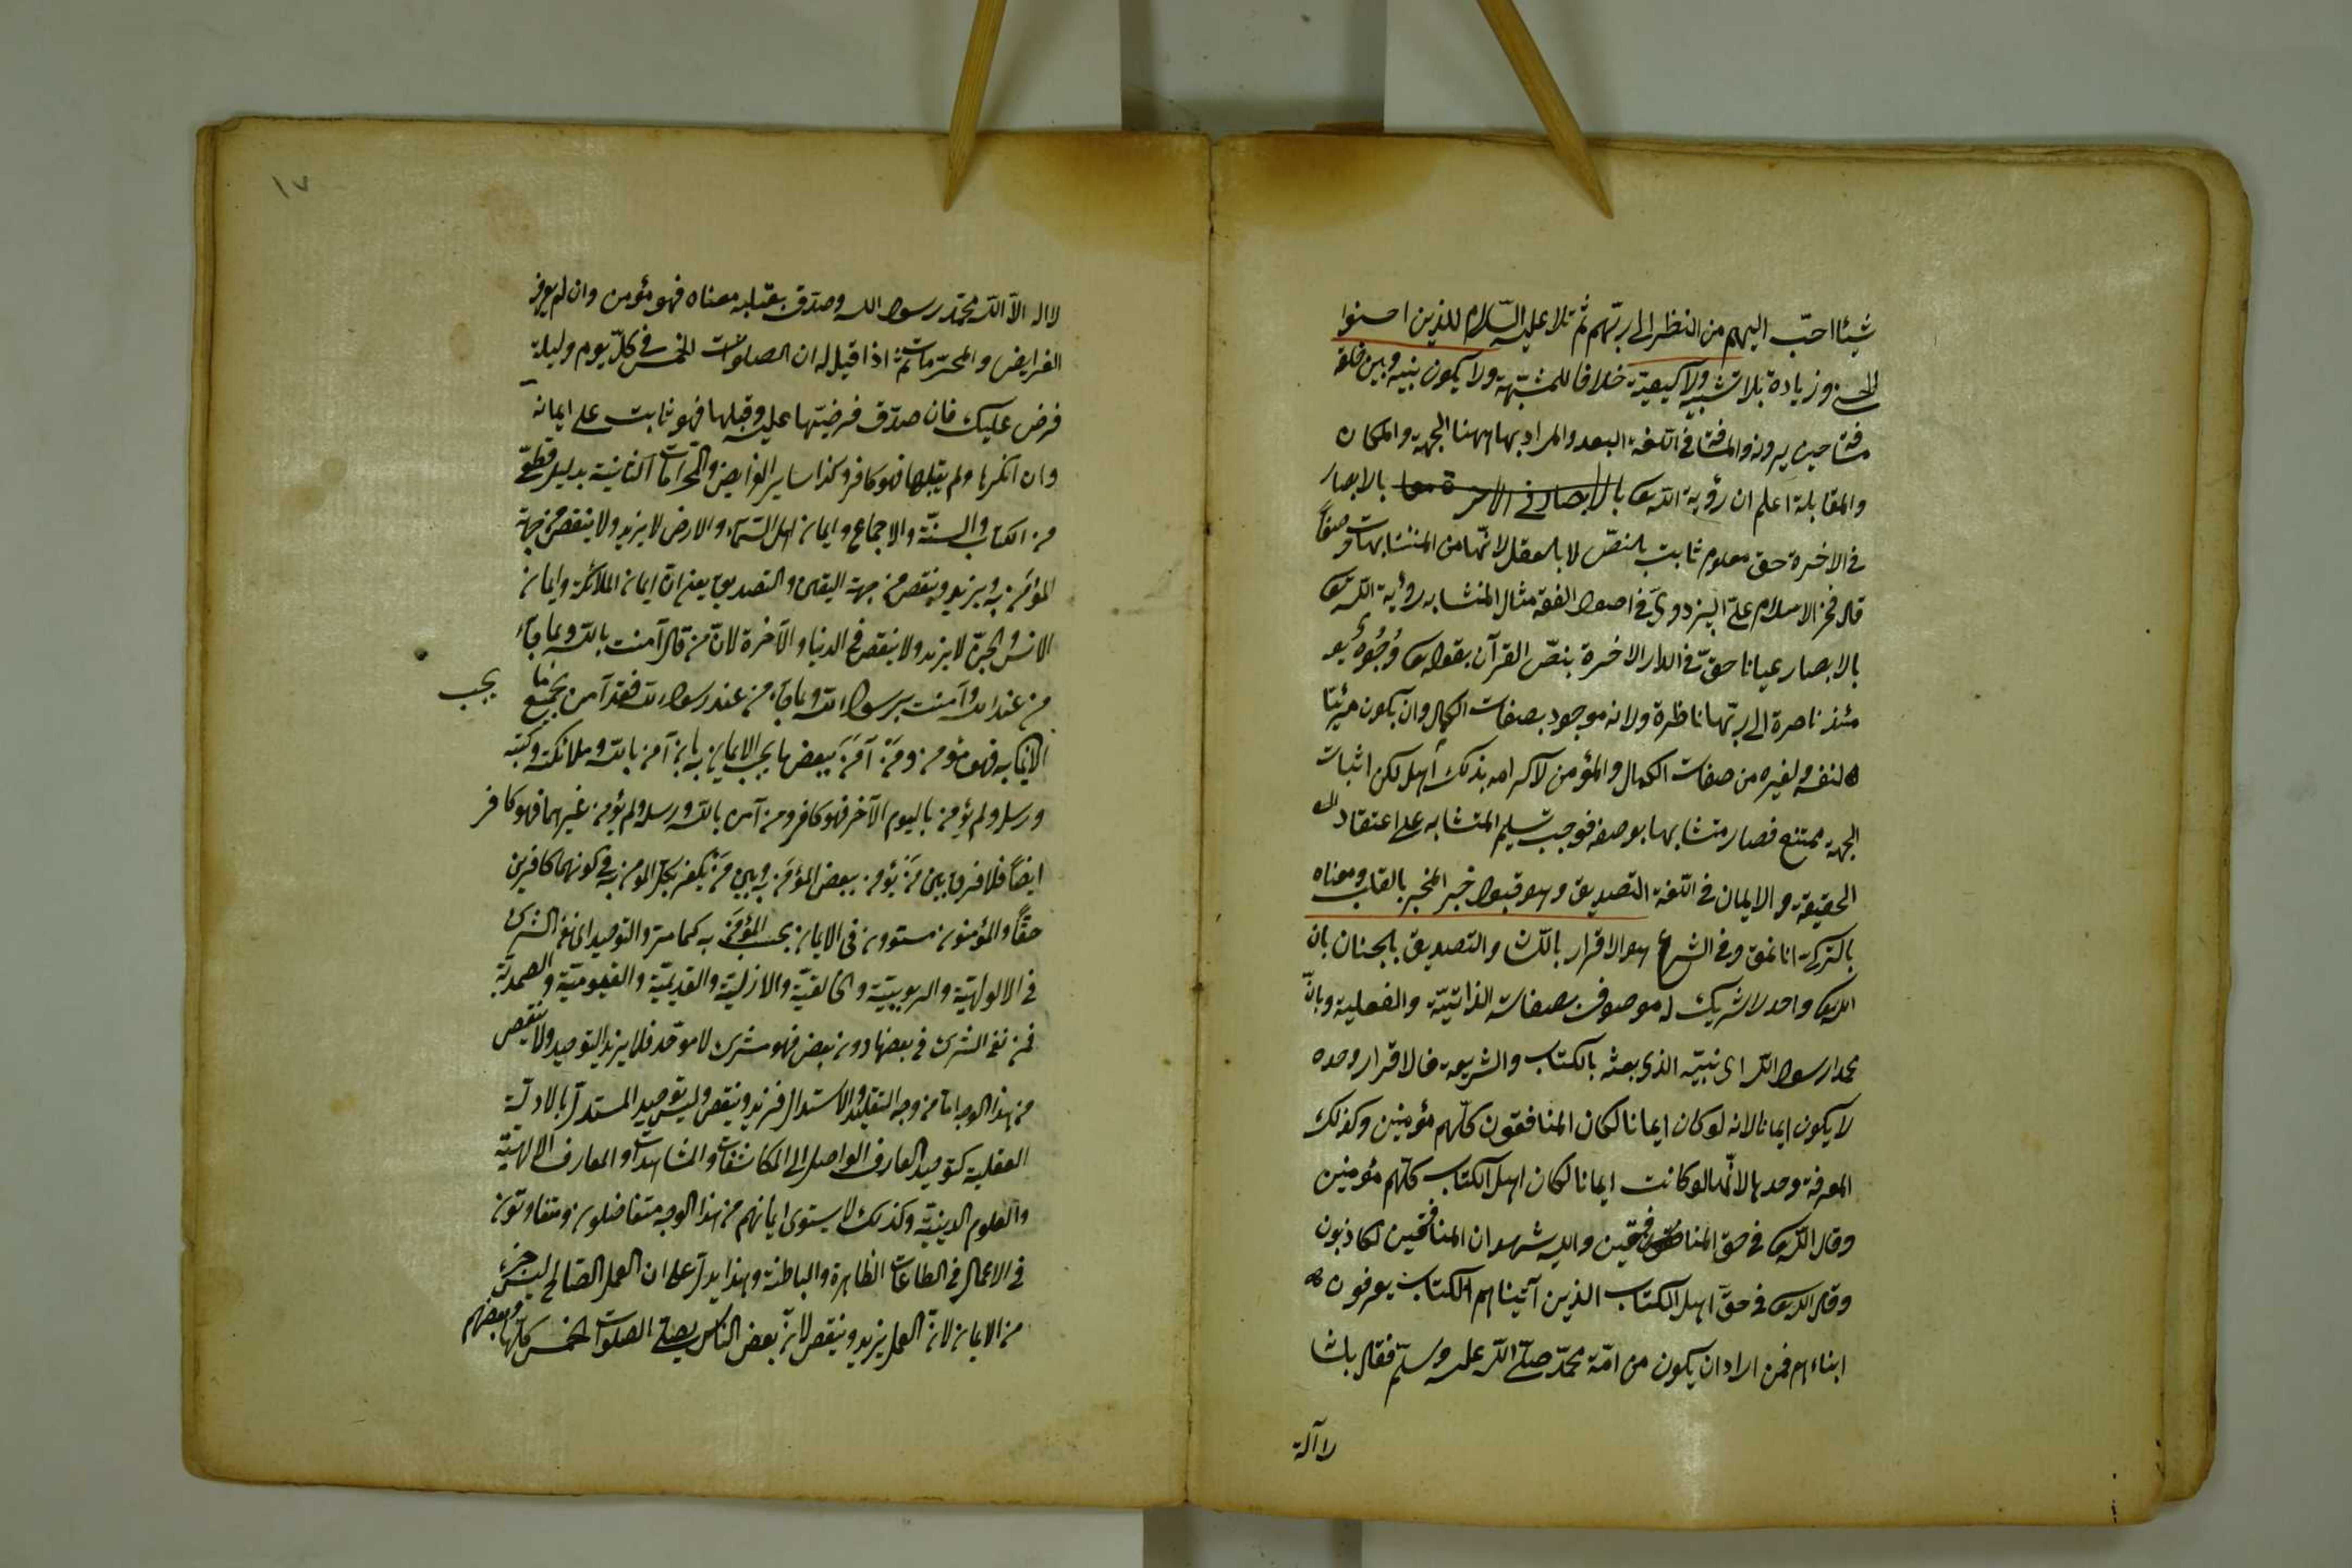 شيئا احبّ اليهم من النظر الى ربّهم ثم تلا عليه السّلام للذين احسنوا
الحسنى وزيادة بلا تشبيه ولا كيفية خلافا للمشبّهة ولا يكون بينه وبين خلقه
مسافة حين يرونه والمسافة فى اللغة البعد والمراد بها ههنا الجهة والمكان
والمقابلة اعلم ان رؤية الله تعالى بالابصار فى الاخرة بالابصار
فى الاخرة حق معلوم ثابت بالنصّ لا بالعقل لانّها من المتشابهات وصفاً
قال فخر الاسلام على البزدوى فى اصول الفقه مثال المتشابه رؤية الله تعالى
بالابصار عيانا حقّ فى الدار الاخرة بنصّ القرآن بقوله تعالى وُجُوهٌ يو
مئذ ناضرة الى ربّها ناظرة ولانه موجود بصفات الكمال وان يكون مرئيّا
لنفسه ولغيره من صفات الكمال والمؤمن لاكرامه بذلك اهل لكن اثبات
الجهة ممتنع فصار متشابها بوصفه فوجب تسليم المتشابه على اعتقاد
الحقيقة والايمان فى اللّغة التصديق وهو قبول خبر المخبر بالقلب ومعناه
بالتركية انانمق وفى الشرع هو الاقرار باللسان والتصديق بالجنان بان
الله تعالى واحد لا شريك له موصوف بصفاته الذاتيّة والفعلية وبانّ
محمدا رسول الله اى نبيّه الذى بعثه بالكتاب والشريعة فالاقرار وحده
لا يكون ايمانا لانه لو كان ايمانا لكان المنافقون كلّهم مؤمنين وكذلك
المعرفة وحدها لانّها لو كانت ايمانا لكان اهل الكتاب كلّهم مؤمنين
وقال الله تعالى فى حقّ المنافقين والله يشهد ان المنافقين لكاذبون
وقال الله تعالى فى حقّ اهل الكتاب الذين آتيناهم الكتاب يعرفونه
ابناءهم فمن اراد ان يكون من امّة محمّد صلّى الله عليه وسلّم فقال بلسا
لا اله
١٧
لا اله الاّ الله محمّد رسول الله وصدّق بقلبه معناه فهو مؤمن وان لم يعرف
الفرايض والمحرّمات ثمّ اذا قيل له ان الصلوات الخمس فى كلّ يوم وليلة
فرض عليك فان صدّق فرضيّتها عليه وقبلها فهو ثابت على ايمانه
وان انكرها ولم يقبلها فهو كافر وكذا ساير الفرايض والمحرّمات الثابتة بدليل قطعىّ
من الكتاب والسنّة والاجماع وايمان اهل السّماء والارض لا يزيد ولا ينقص من جهة
المؤمَن به ويزيد وينقص من جهة اليقين والتصديق يعنى انّ ايمان الملائكة وايمان
الانس والجنّ لا يزيد ولا ينقص فى الدنيا والآخرة لانّ من قال آمنت بالله وبما جآء
من عند الله وآمنت برسول الله وبما جآء من عند رسول الله فقد آمن بجميع ما يجب
الايمان به فهو مؤمن ومَنْ آمَنَ ببعض ما يجب الايمان به بان آمن بالله وملائكته وكتبه
ورسله ولم يؤمن باليوم الآخر فهو كافر ومن آمن بالله ورسله ولم يؤمن غيرهما فهو كافر
ايضاً فلا فرق بين مَنْ يؤمن ببعض المؤمَن به وبين مَنْ يكفر بكلّ المؤمَن به فى كونهما كافرين
حقاً والمؤمنون مستوون فى الايمان بحسب المؤمَن به كما مرّ والتوحيد اى نفى الشرك
فى الالوهيّة والربوبيّة والخالقيّة والازليّة والقديميّة والقيوميّة والصمديّة
فمن نفى الشرك فى بعضها دون بعض فهو مشرك لا موحّد فلا يزيد التوحيد ولا ينقص
من هذا الوجه امّا من وجه التقليد والاستدلال فيزيد وينقص وليس توحيد المستدلّ بالادلّة
العقلية كتوحيد العارف الواصل الى المكاشفات والمشاهدات والمعارف الالهيّة
والعلوم الدينيّة وكذلك لا يستوى ايمانهم من هذا الوجه متفاضلون ومتفاوتون
فى الاعمال فى الطاعات الظاهرة والباطنة وهذا يدلّ على ان العمل الصّالح ليس جزء
من الايمان لانّ العمل يزيد وينقص لانّ بعض الناس يصلّى الصلوات الخمس كلّها وبعضهم